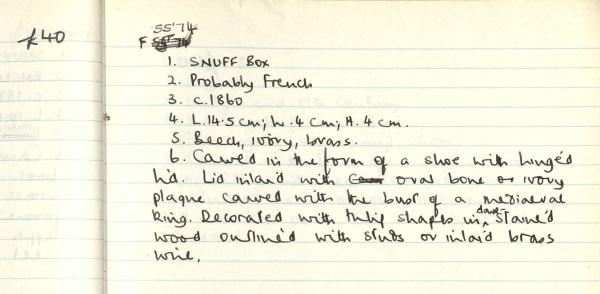 £40
SS'74
F
1. SNUFF BOX
2. Probably French
3. c.1860
4. L.14.5cm; W.4cm; H.4cm.
5. Beech, ivory, brass.
6. Carved in the form of a shoe with hinged
lid. Lid inlaid with oval bone or ivory
plaque carved with the bust of a mediaeval
king. Decorated with tulip shapes in dark stained
wood outlined with studs or inlaid brass
wire.